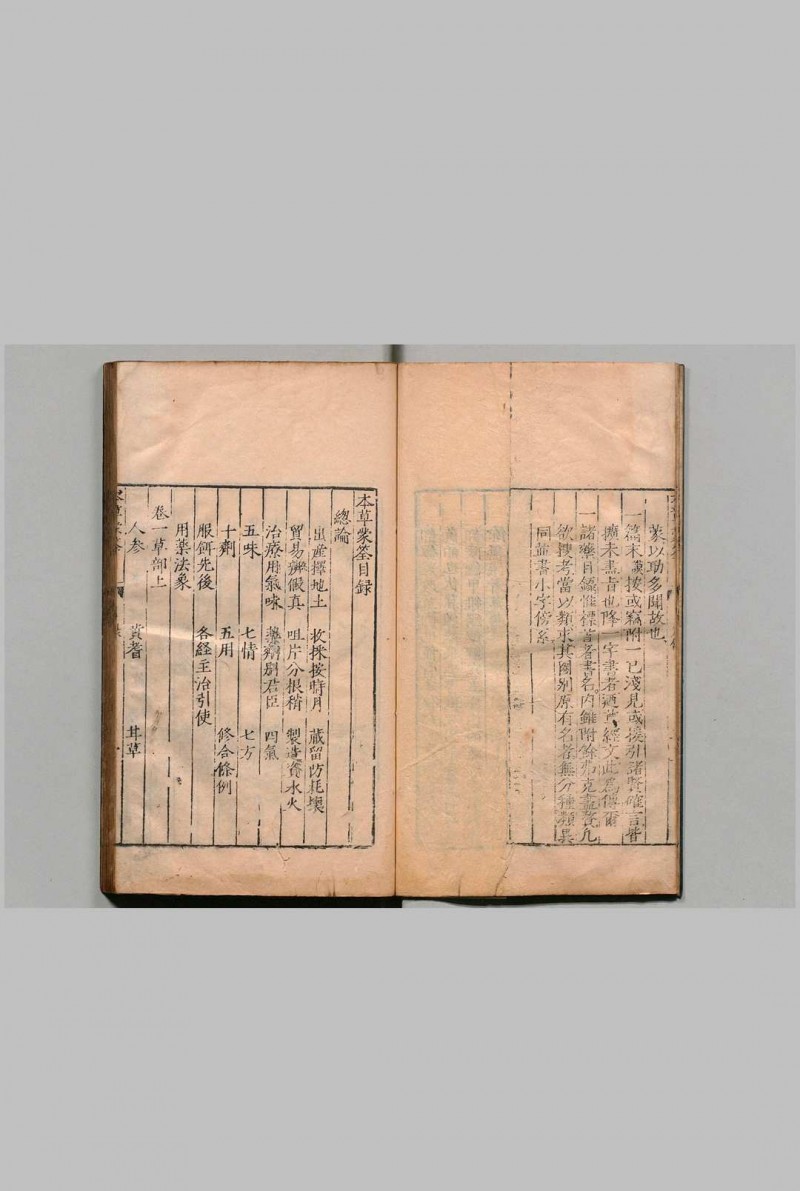 蒙以助多聞故也
一篇末謨按或竊附一已淺見或援引諸賢確言皆
擴未盡者也降一字書者遜其經文此爲傳爾
一諸藥目錄惟標著者書名内雖附餘弗克盡贅凡
欲搜考當以類求其圖别原有名者無分種類異
同並書小字傍系
本草蒙筌目録
總論
出産擇地土 收採按時月 藏留防耗壞
貿易辨假真 咀片分根稍 製造資水火
治療用氣味 藥劑别君臣 四氣
五味 七情 七方
十劑 五用 修合條例
服餌先後 各經主治引使
用藥法象
卷一草部上
人參 黄耆 甘草